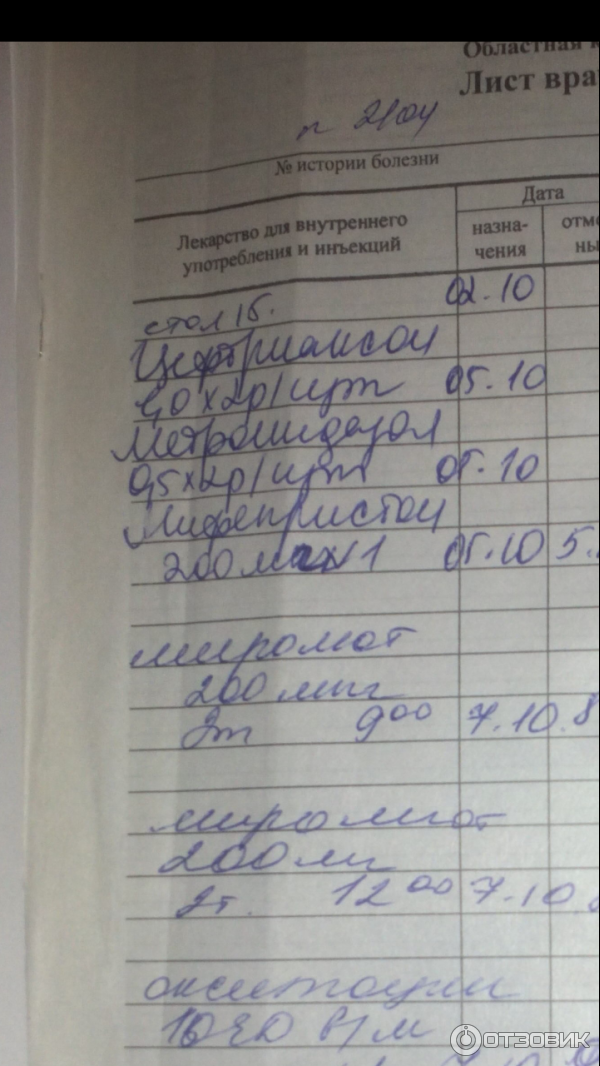 Областная
Лист вра
п 2104
№ истории болезни
Лекарство для внутреннего употребления и инъекций
Дата
назна-
чения
отме
ны
стол 15. 02.10
Цефтриаксон
1,0 х 2р/ 05.10
Метронидазол
0,5 х 2р/ 05.10
Мифепристон
200 1 05.10 5.
миролют
200 мкг
2т 9⁰⁰ 7.10. 8
миролют
200
2т. 12⁰⁰ 7.10.
окситоцин
в/м
ОТЗОВИК